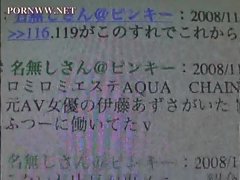 PORNWW.NET
名無しさん＠ピンキー：2008/11
>>116,119がこのすれでこれから
名無しさん＠ピンキー：2008/11
ロミロミエステAQUA　CHAIN
元AV女優の伊藤あずさがいた！
ふつーに働いてたｖ
名無しさん＠ピンキー：2008/1